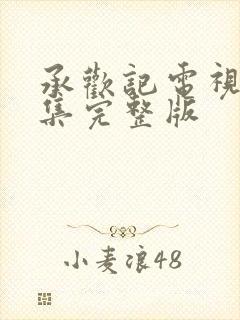 承歡記電視
集完整版
小麦凉48